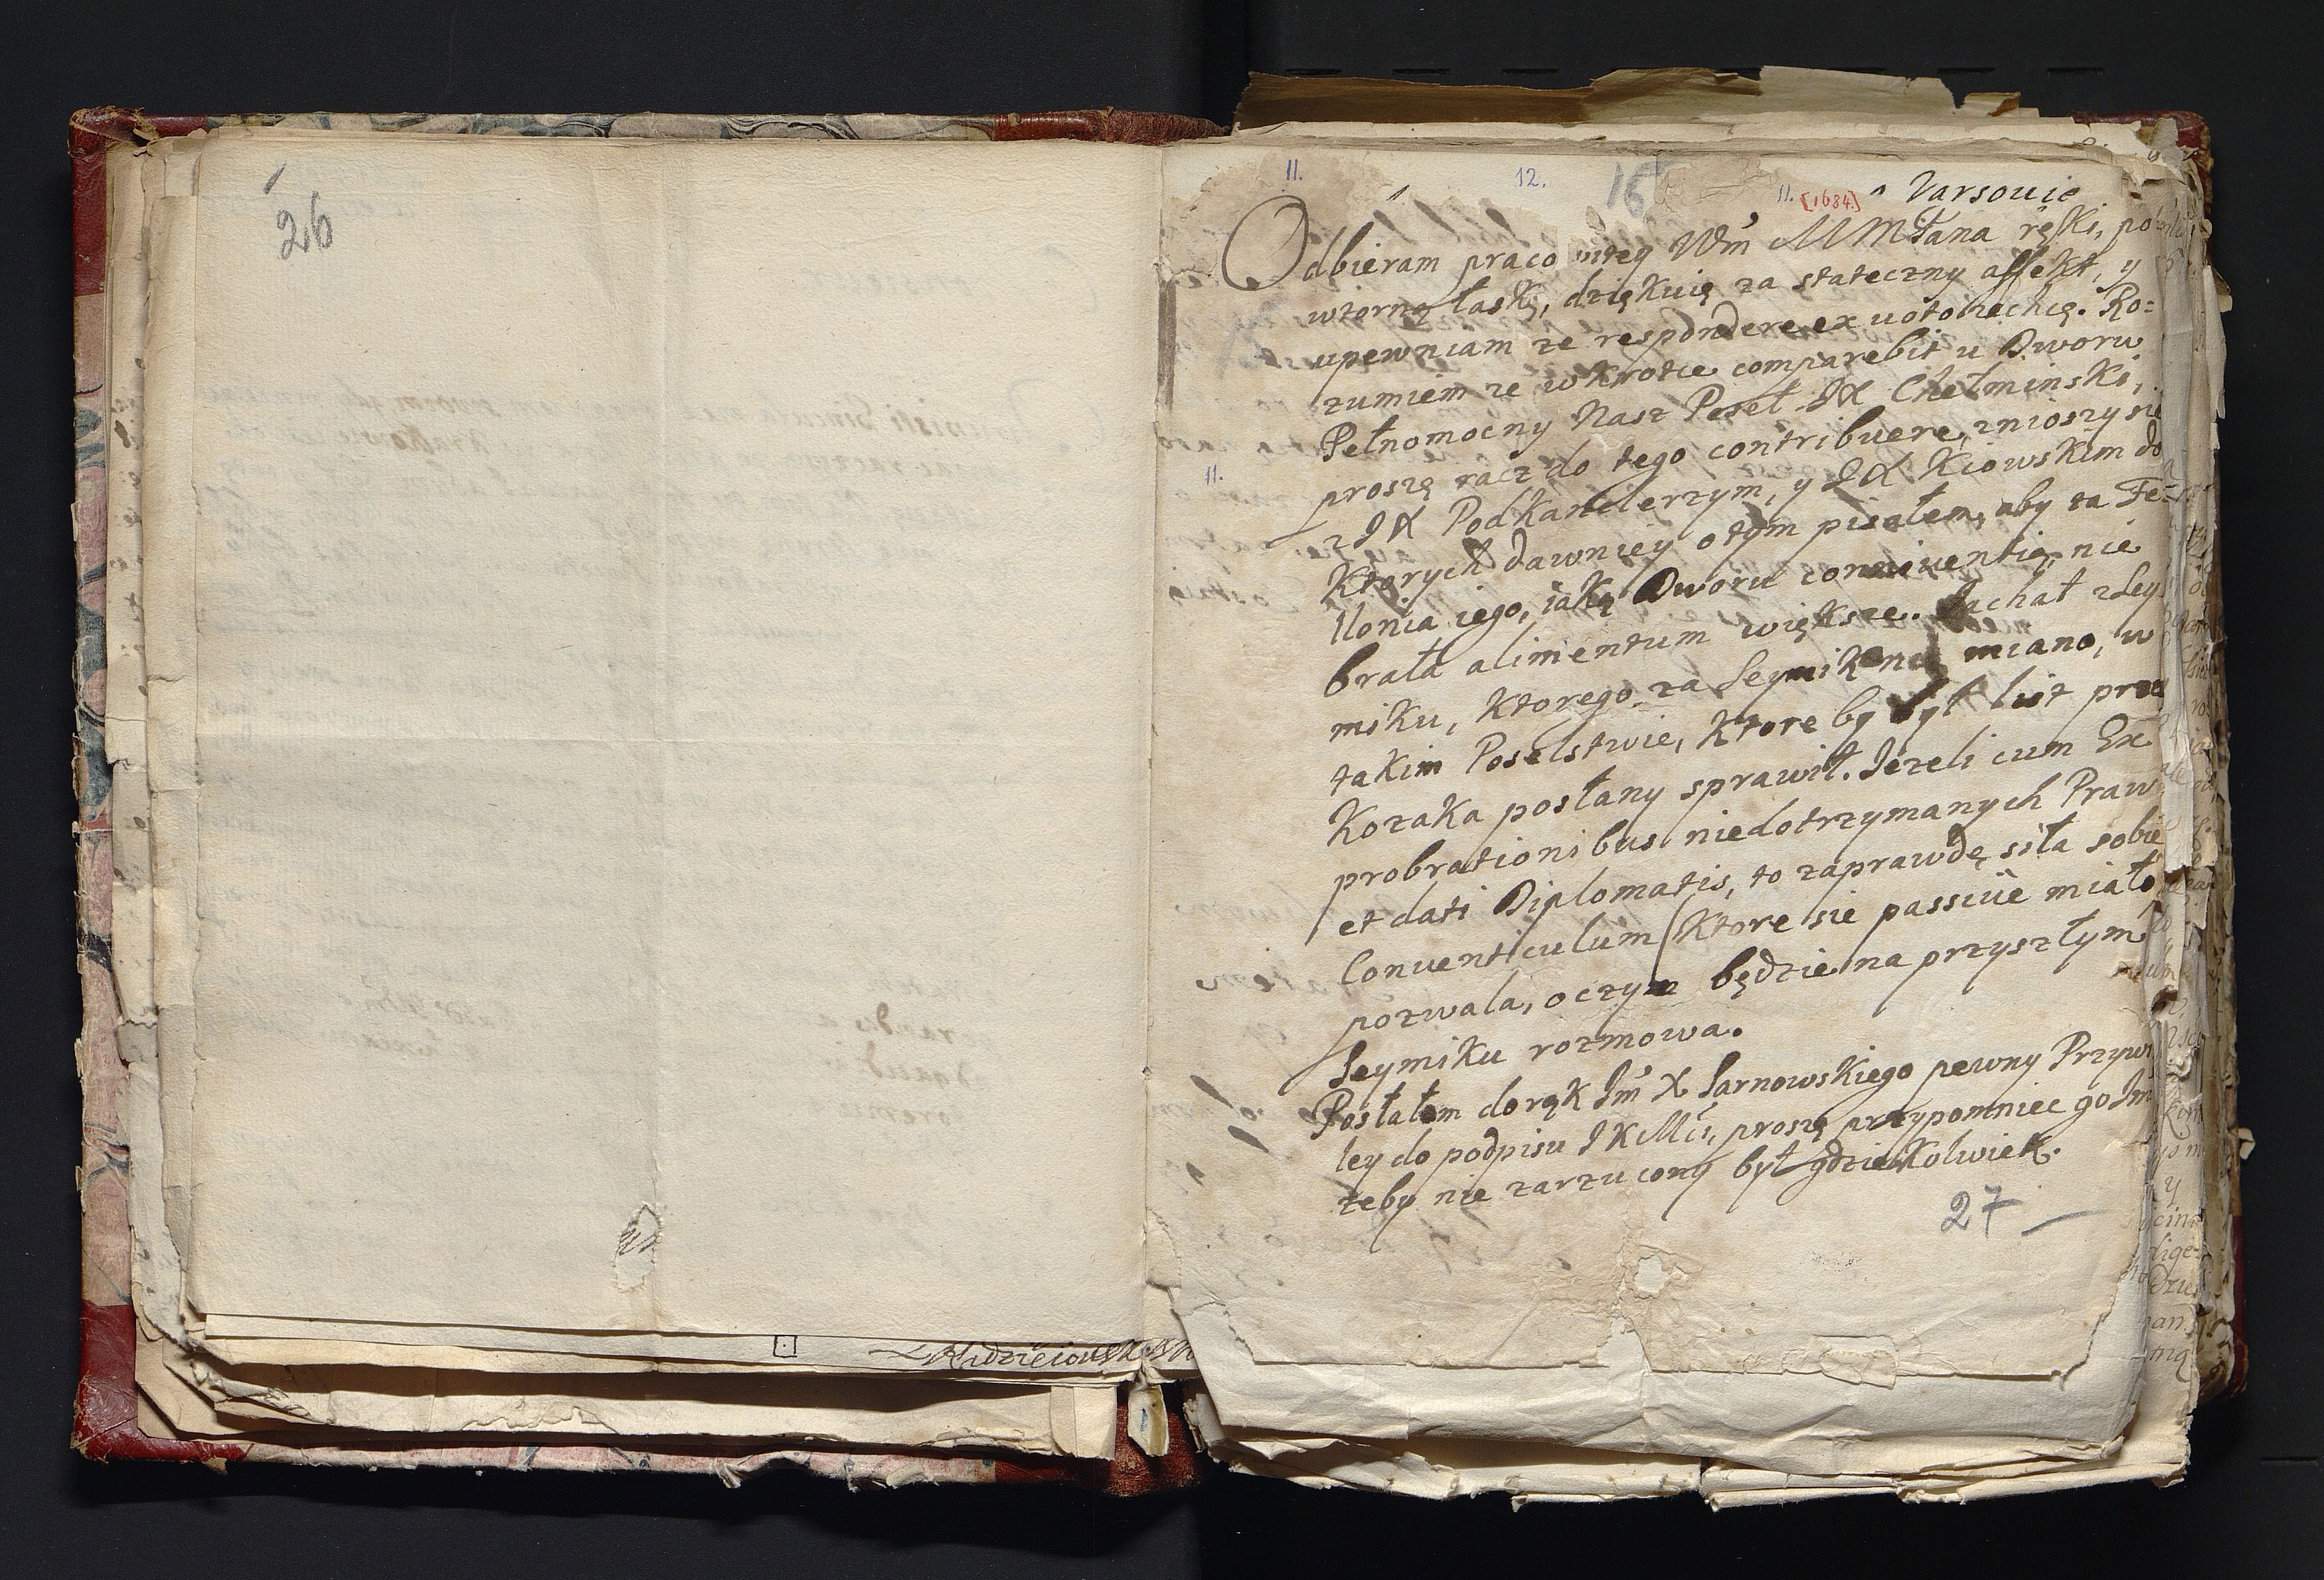 26
11.
12.
16
11. [1684.]
Varsovie
Odbieram praco witey Wm MMPana ręki, po
wtorną łaskę, dziękuię za stateczny affekt, y
upewniam ze respondere ex uoto zechcę. Ro=
zumiem ze wkrotce comparebit u Dworu
Pełnomocny Nasz Poseł JX Chełminski,
proszę racz do tego contribuere, zniosszy się
11.
z JX Podkanclerzym, y JX Kiowskim do
Ktorych dawniey o tym pisałem, aby ta Fe=
llonia iego, iaką Dworu conniuentią, nie
brała alimentum większe. Iachał z Sey
miku, Ktorego za Seymik nie miano, w
takim Poselstwie, Ktore by był list przez
Kozaka posłany sprawił. Iezeli cum Ex
probrationibus niedotrzymanych Praw
et dati Diplomatis, to zaprawdę siła sobie
Conuenticulum Ktore sie passiue miało
pozwala, o czym będzie na przyszłym
Seymiku rozmowa.
Posłałem do rąk Jm X Sarnowskiego pewny Przywi
ley do podpisu JKMci, proszę przypomniec go Jm
zeby nie zarzucony był gdziekolwiek.
27